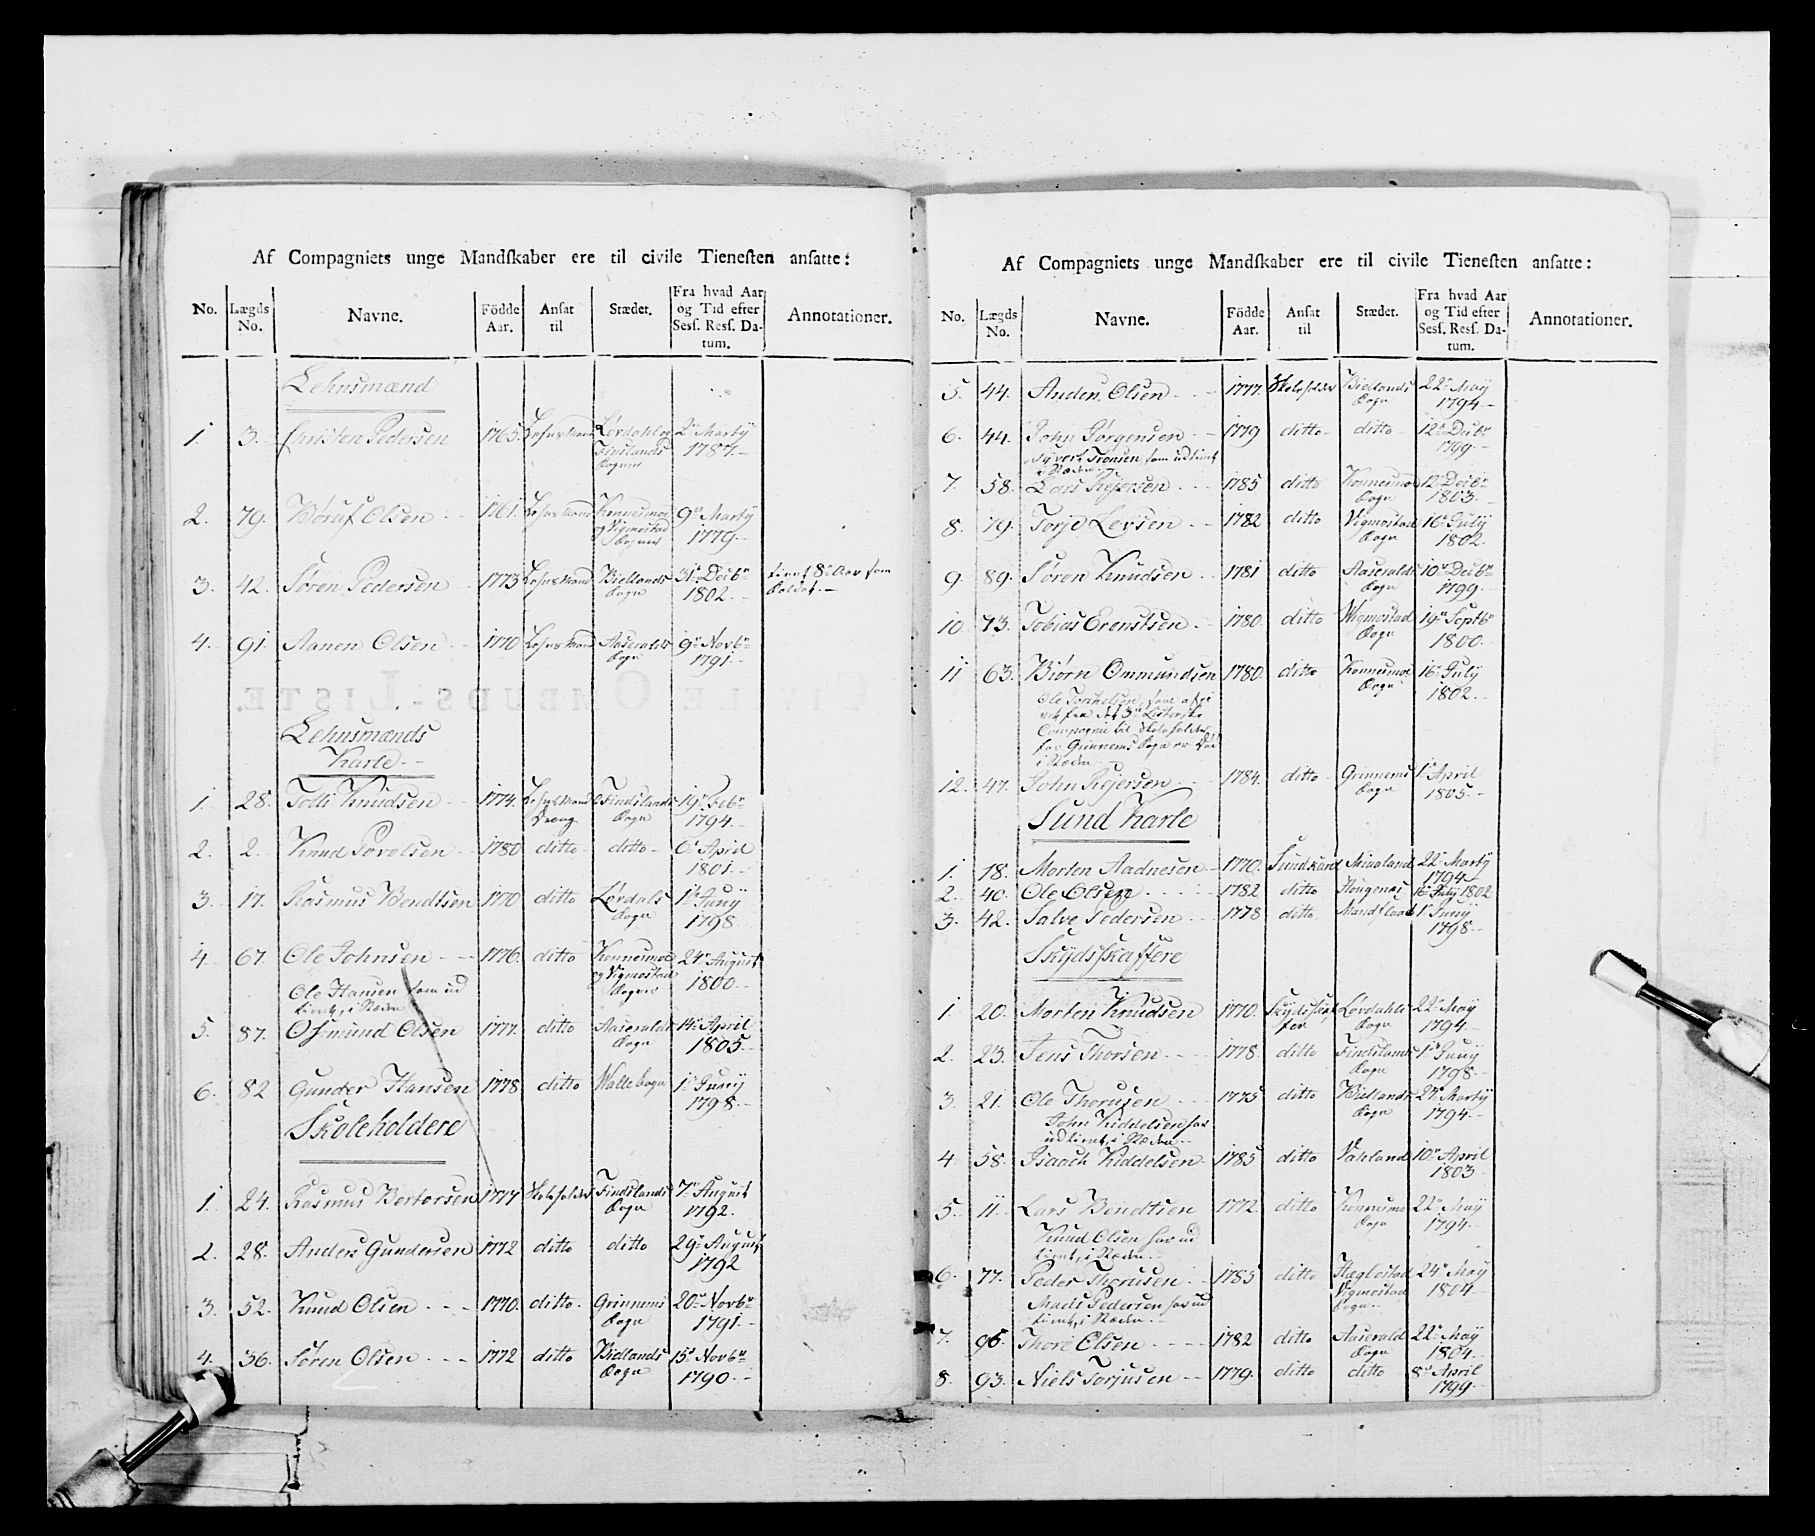 Af Compagniets unge Mandſkaber ere til civile Tieneſten anſatte:
No. Lægds No. Navne. Födde Aar. Anſat til Stædet. Fra hvad Aar og Tid efter Sesſ. Resſ. Datum. Annotationer.
Lehnsmænd
1. 3. Christen Pedersen 1765. Lehnsmand Lørdahls og Finslands Sogne 2den Marty 1787.
2. 79. Børuf Olsen 1761. Lehnsmand Konnesmoe og Vigmostad Sogner 9de Marty 1779.
3. 42. Søren Pedersen 1773 Lehnsmand Biellands Sogn 31te Decbr 1802. tient 8te Aar som Soldat.
4. 91. Aanen Olsen 1770 Lehnsmand Aaseralds Sogn 9de Novbr 1791.
Lehnsmænds
Karle
1. 28. Tolli Knudsen 1774. Lehnsmand Dreng Findslands Sogn 19de Febr 1794.
2. 2. Knud Torelsen 1780 ditto ditto 6te April 1801.
3. 17. Rasmus Bendtsen 1770 ditto Lørdals Sogn 1te Juny 1798.
4. 67. Ole Johnsen 1776. ditto Konnesmoe og Vigmostad Sogner 24de August 1800.
Ole Hansen som ud
tient, i Stæden
5. 87. Osmund Olsen 1777. ditto Aaseralds Sogn 14de April 1805.
6. 82 Gunder Hansen 1778 ditto Halle Sogn 1te Juny 1798.
Skoleholdere
1. 24. Rasmus Bertorsen 1777 Skoleholder Findslands Sogn 7de August 1792.
2. 28. Anders Gundersen 1772 ditto ditto 29de August 1792
3. 52. Knud Olsen 1770. ditto. Grinnems Sogn 20de Novbr 1791.
4. 36. Søren Olsen 1772 ditto Biellands Sogn 15de Novbr 1790.
Af Compagniets unge Mandſkaber ere til civile Tieneſten anſatte:
No. Lægds No. Navne. Födde Aar. Anſat til Stædet. Fra hvad Aar og Tid efter Sesſ. Resſ. Datum. Annotationer.
5. 44. Anders Olsen 1777. Skoleholder Biellands Sogn 22de May 1794.
6. 44. John Jørgensen 1779 ditto ditto 12te Decbr 1799.
Syvert Tronsen som udtient
i Stæden
7. 58. Lars Rejersen 1785 ditto Konnesmoe Sogn 12te Decbr 1803.
8. 79. Torje Levsen 1782 ditto Vigmostad Sogn 16de July 1802.
9. 89. Søren Knudsen 1781 ditto Aaseralds Sogn 10de Decbr 1799.
10. 73. Tobias Erenstsen 1780 ditto Wigmostad Sogn 19de Septbr 1800.
11 63. Biørn Ommundsen 1780. ditto Konnesmoe Sogn 16de July 1802.
Ole Torkelsen, som afgi
vet fra det 3de Listerske
Compagnie til Skoleholder
for Grinnems Sogn er Død
i Stæden
12. 47. John Rejersen 1784. ditto Grinnems Sogn 1te April 1805.
Sund Karle
1. 18. Morten Aadnesen 1770. Sundkarl Miaaland 22de Marty 1794.
2. 40. Ole Olsen 1782 ditto Hougenæs 16de July 1802
3. 42. Salve Pedersen 1778 ditto 1te Juny 1798.
Skydsskaffere
1 20. Morten Knudsen 1770. Skydsskaffer Lørdahls Sogn 22de May 1794.
2. 23. Jens Thorsen 1778. ditto Findslands Sogn 1te Juny 1798.
3. 21. Ole Thorusen 1775 ditto Biellands Sogn 27de Marty 1794.
John Kiddelsen har
udtient, i Stæden
4. 58. Isaach Kiddelsen 1785 ditto Vahland 10de April 1803.
5. 11. Lars Bendtsen 1772 ditto Konnesmo Sogn 22de May 1794.
Knud Olsen har ud
tient, i Stæden
6. 77. Peder Thorusen 1785 ditto Hæglestad Vigmostad Sogn 24de May 1804.
Mads Pedersen har ud
tient, i Stæden
7. 96. Thore Olsen 1782 ditto Aaserald Sogn 22de May 1804.
8. 93. Niels Torjusen 1779. ditto ditto 8de April 1799.